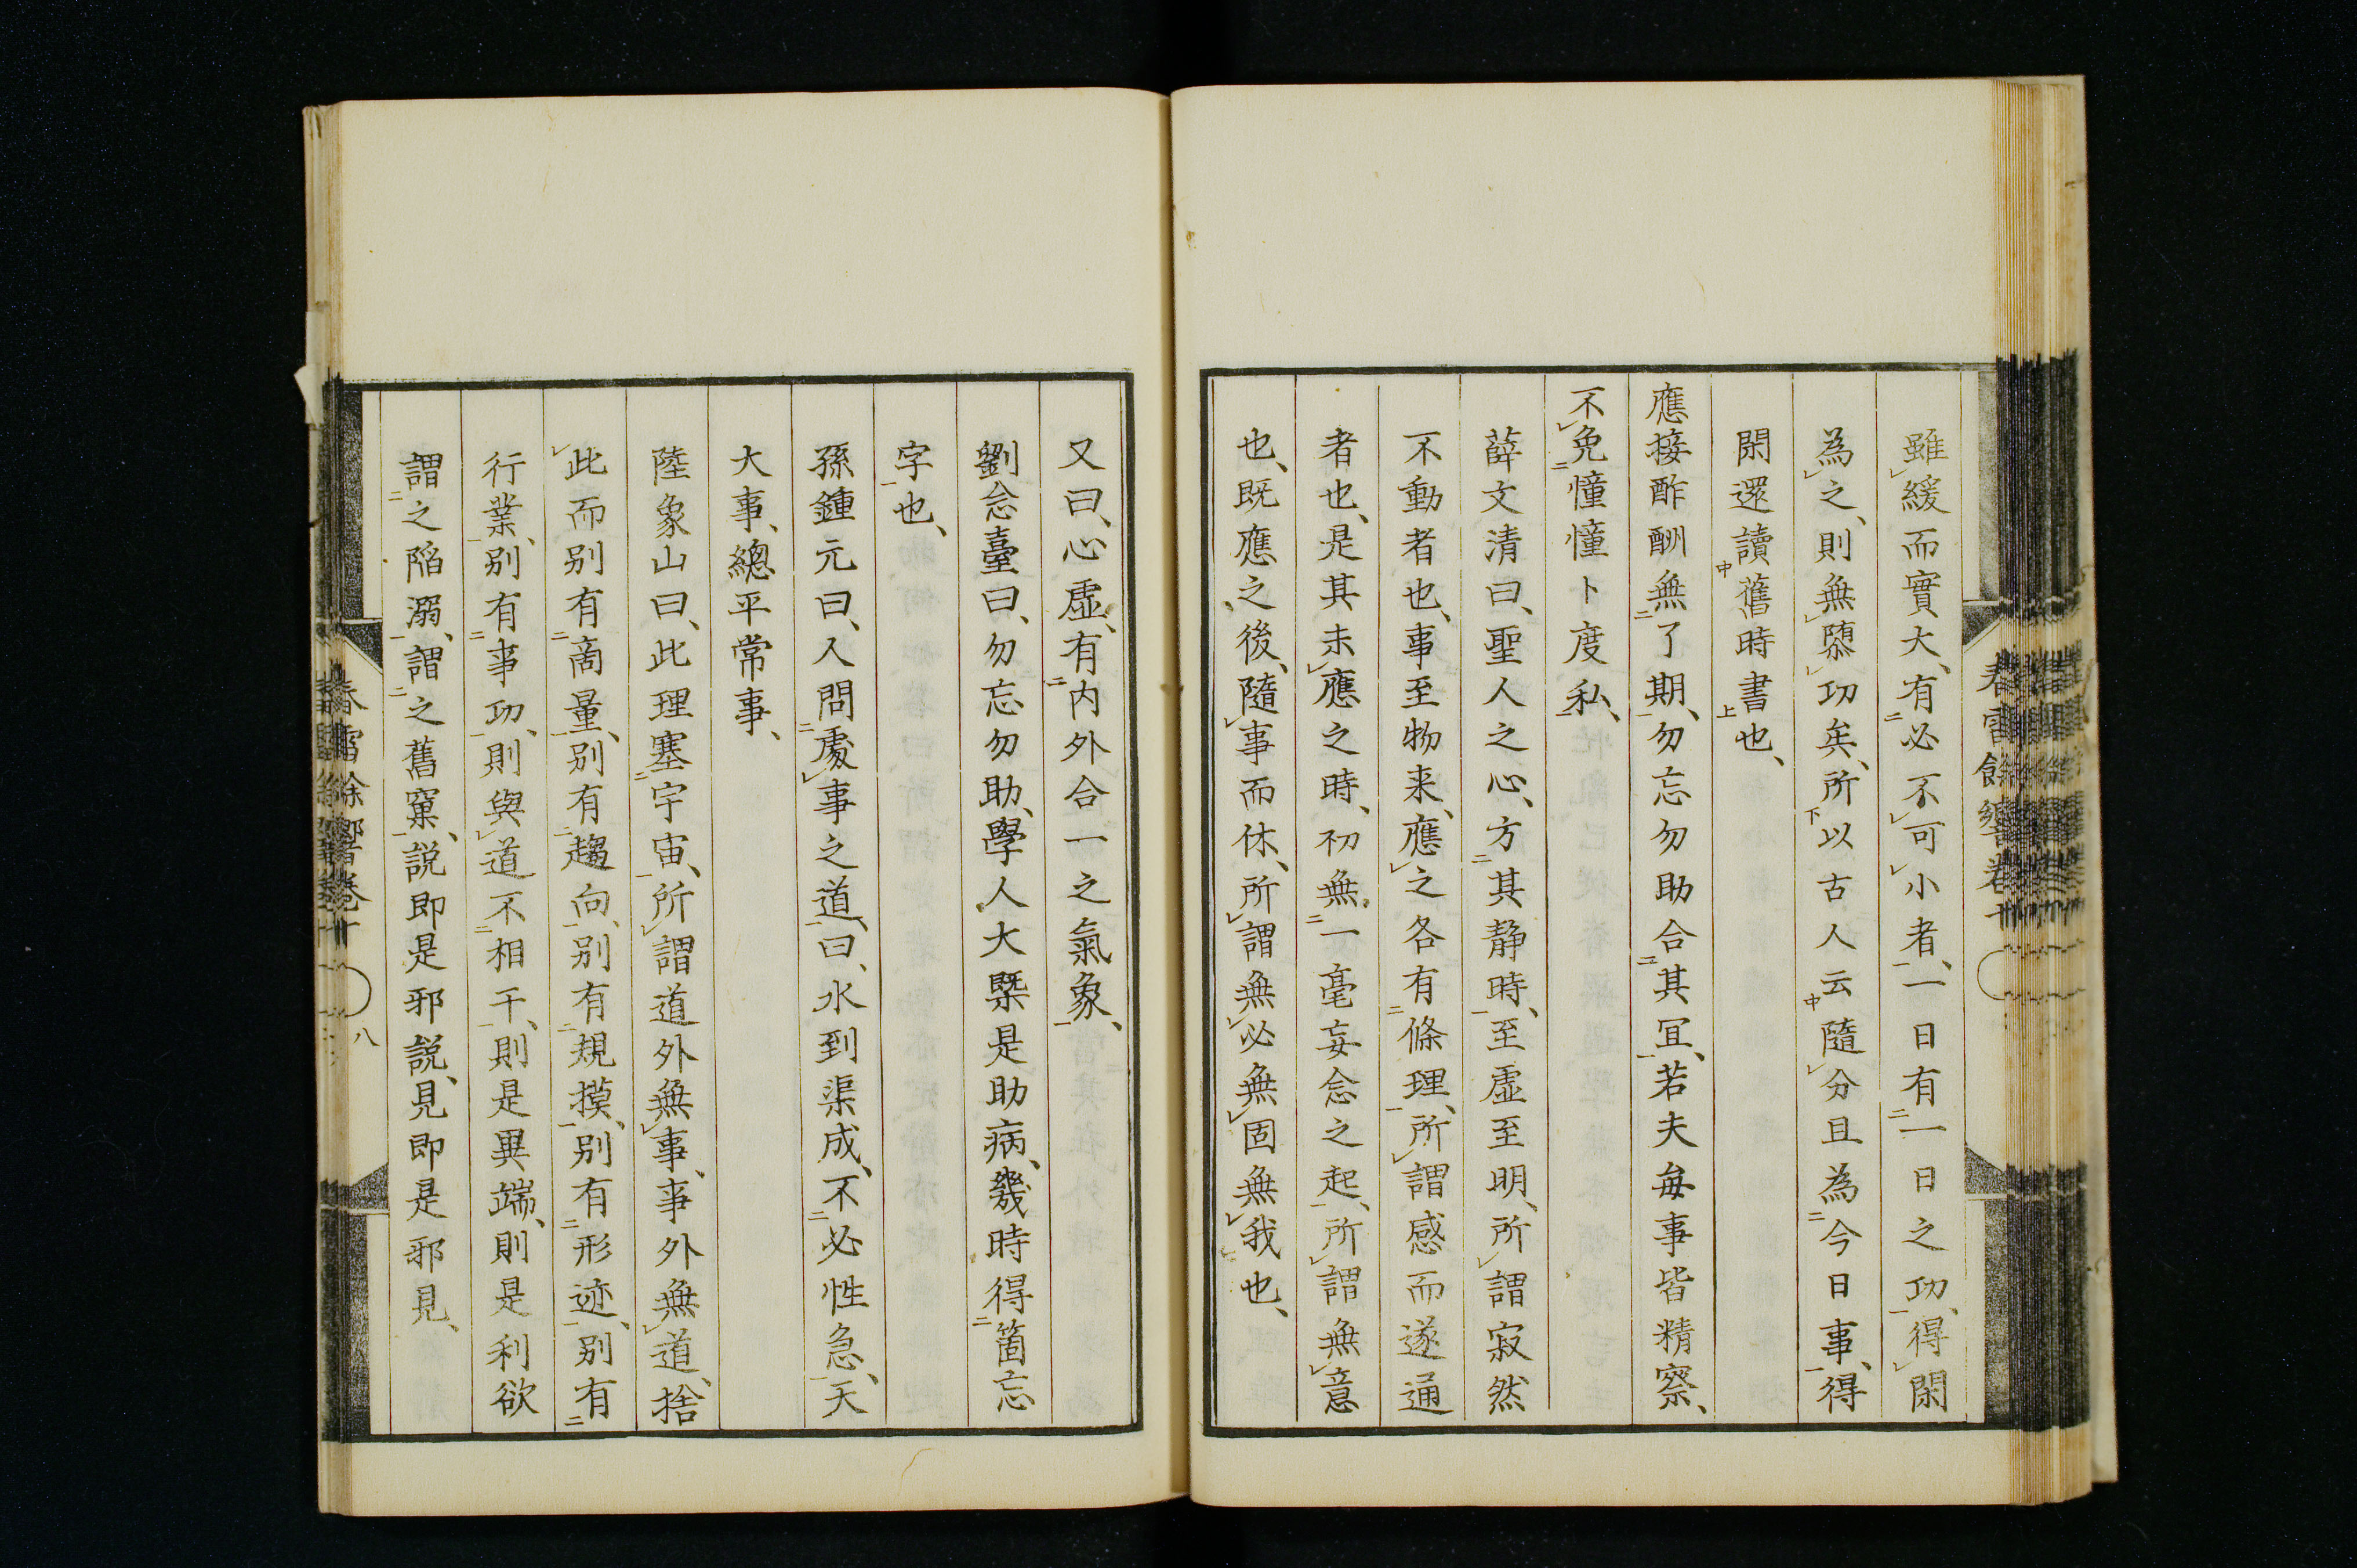 雖緩而實大、有必不可小者、一日有一日之功、得閑
為之、則無隳功矣、所以古人云隨分且為今日事、得
閑還讀舊時書也、
應接酢酬無了期、勿忘勿助合其冝、若夫毎事皆精察、
不免憧憧卜度私、
薛文清曰、聖人之心、方其静時、至虛至明、所謂寂然
不動者也、事至物来、應之各有條理、所謂感而遂通
者也、是其未應之時、初無一毫妄念之起、所謂無意
也、既應之後、隨事而休、所謂無必無固無我也、
又曰、心虛、有内外合一之氣象、
劉念臺曰、勿忘勿助、學人大槩是助病、幾時得箇忘
字也、
孫鍾元曰、人問處事之道、曰、水到渠成、不必性急、天
大事、總平常事、
陸象山曰、此理塞宇宙、所謂道外無事、事外無道、捨
此而别有商量、别有趨向、别有規摸、别有形迹、别有
行業、别有事功、則與道不相干、則是異端、則是利欲
謂之陷溺、謂之舊窠、説即是邪説、見即是邪見、
春雷餘響卷十
八